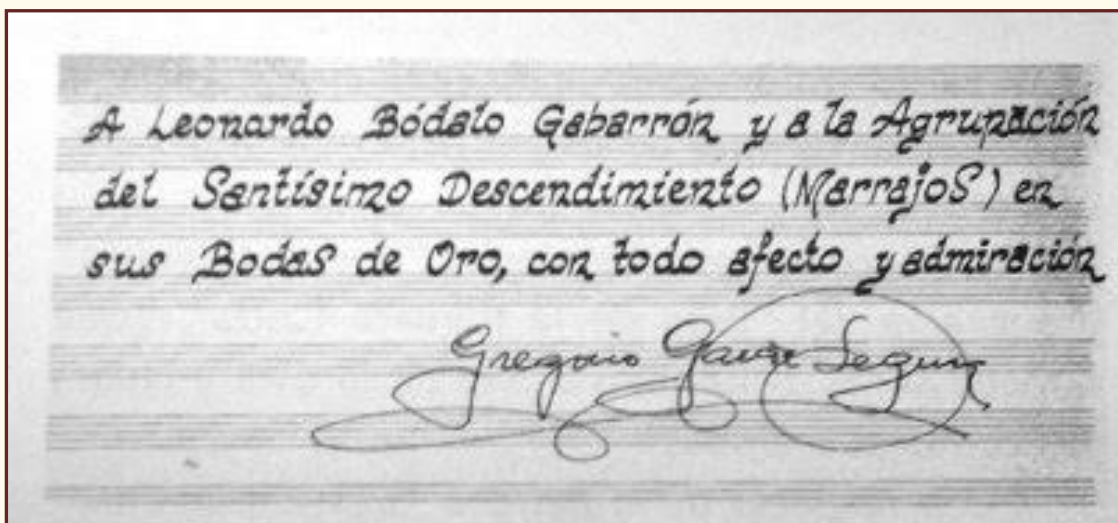 A Leonardo Bódalo Gabarrón y a la Agrupación
del Santísimo Descendimiento (Marrajos) en
sus Bodas de Oro, con todo afecto y admiración
Gregorio García Segura